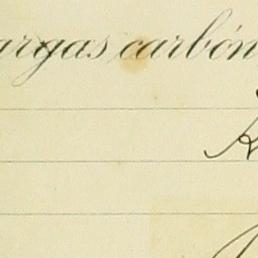 argas carbón